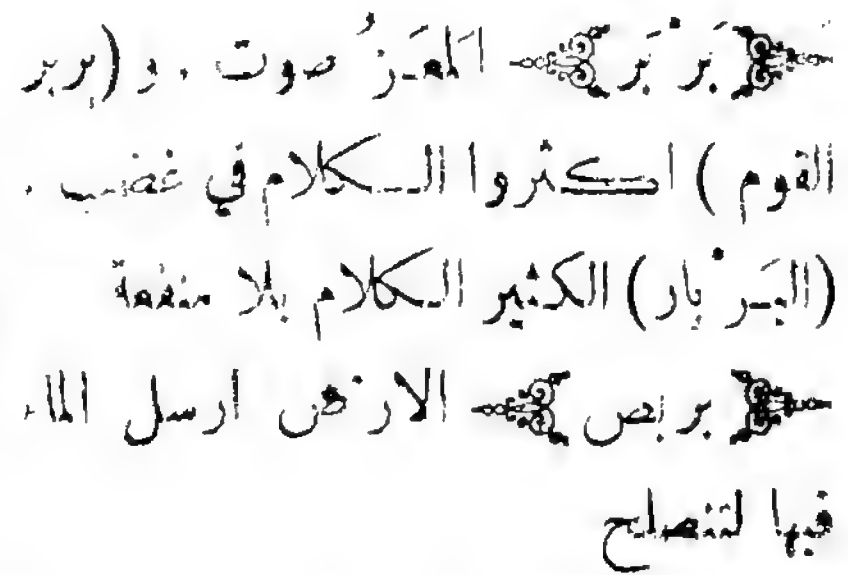 ﴿بَرْبَر﴾ المَعَزُ صوت . و (بربر
القوم ) اكثروا الكلام في غضب .
(البَرْبار) الكثير الكلام بلا منفعة
﴿بربص﴾ الارض ارسل الماء
فيها لتنصلح